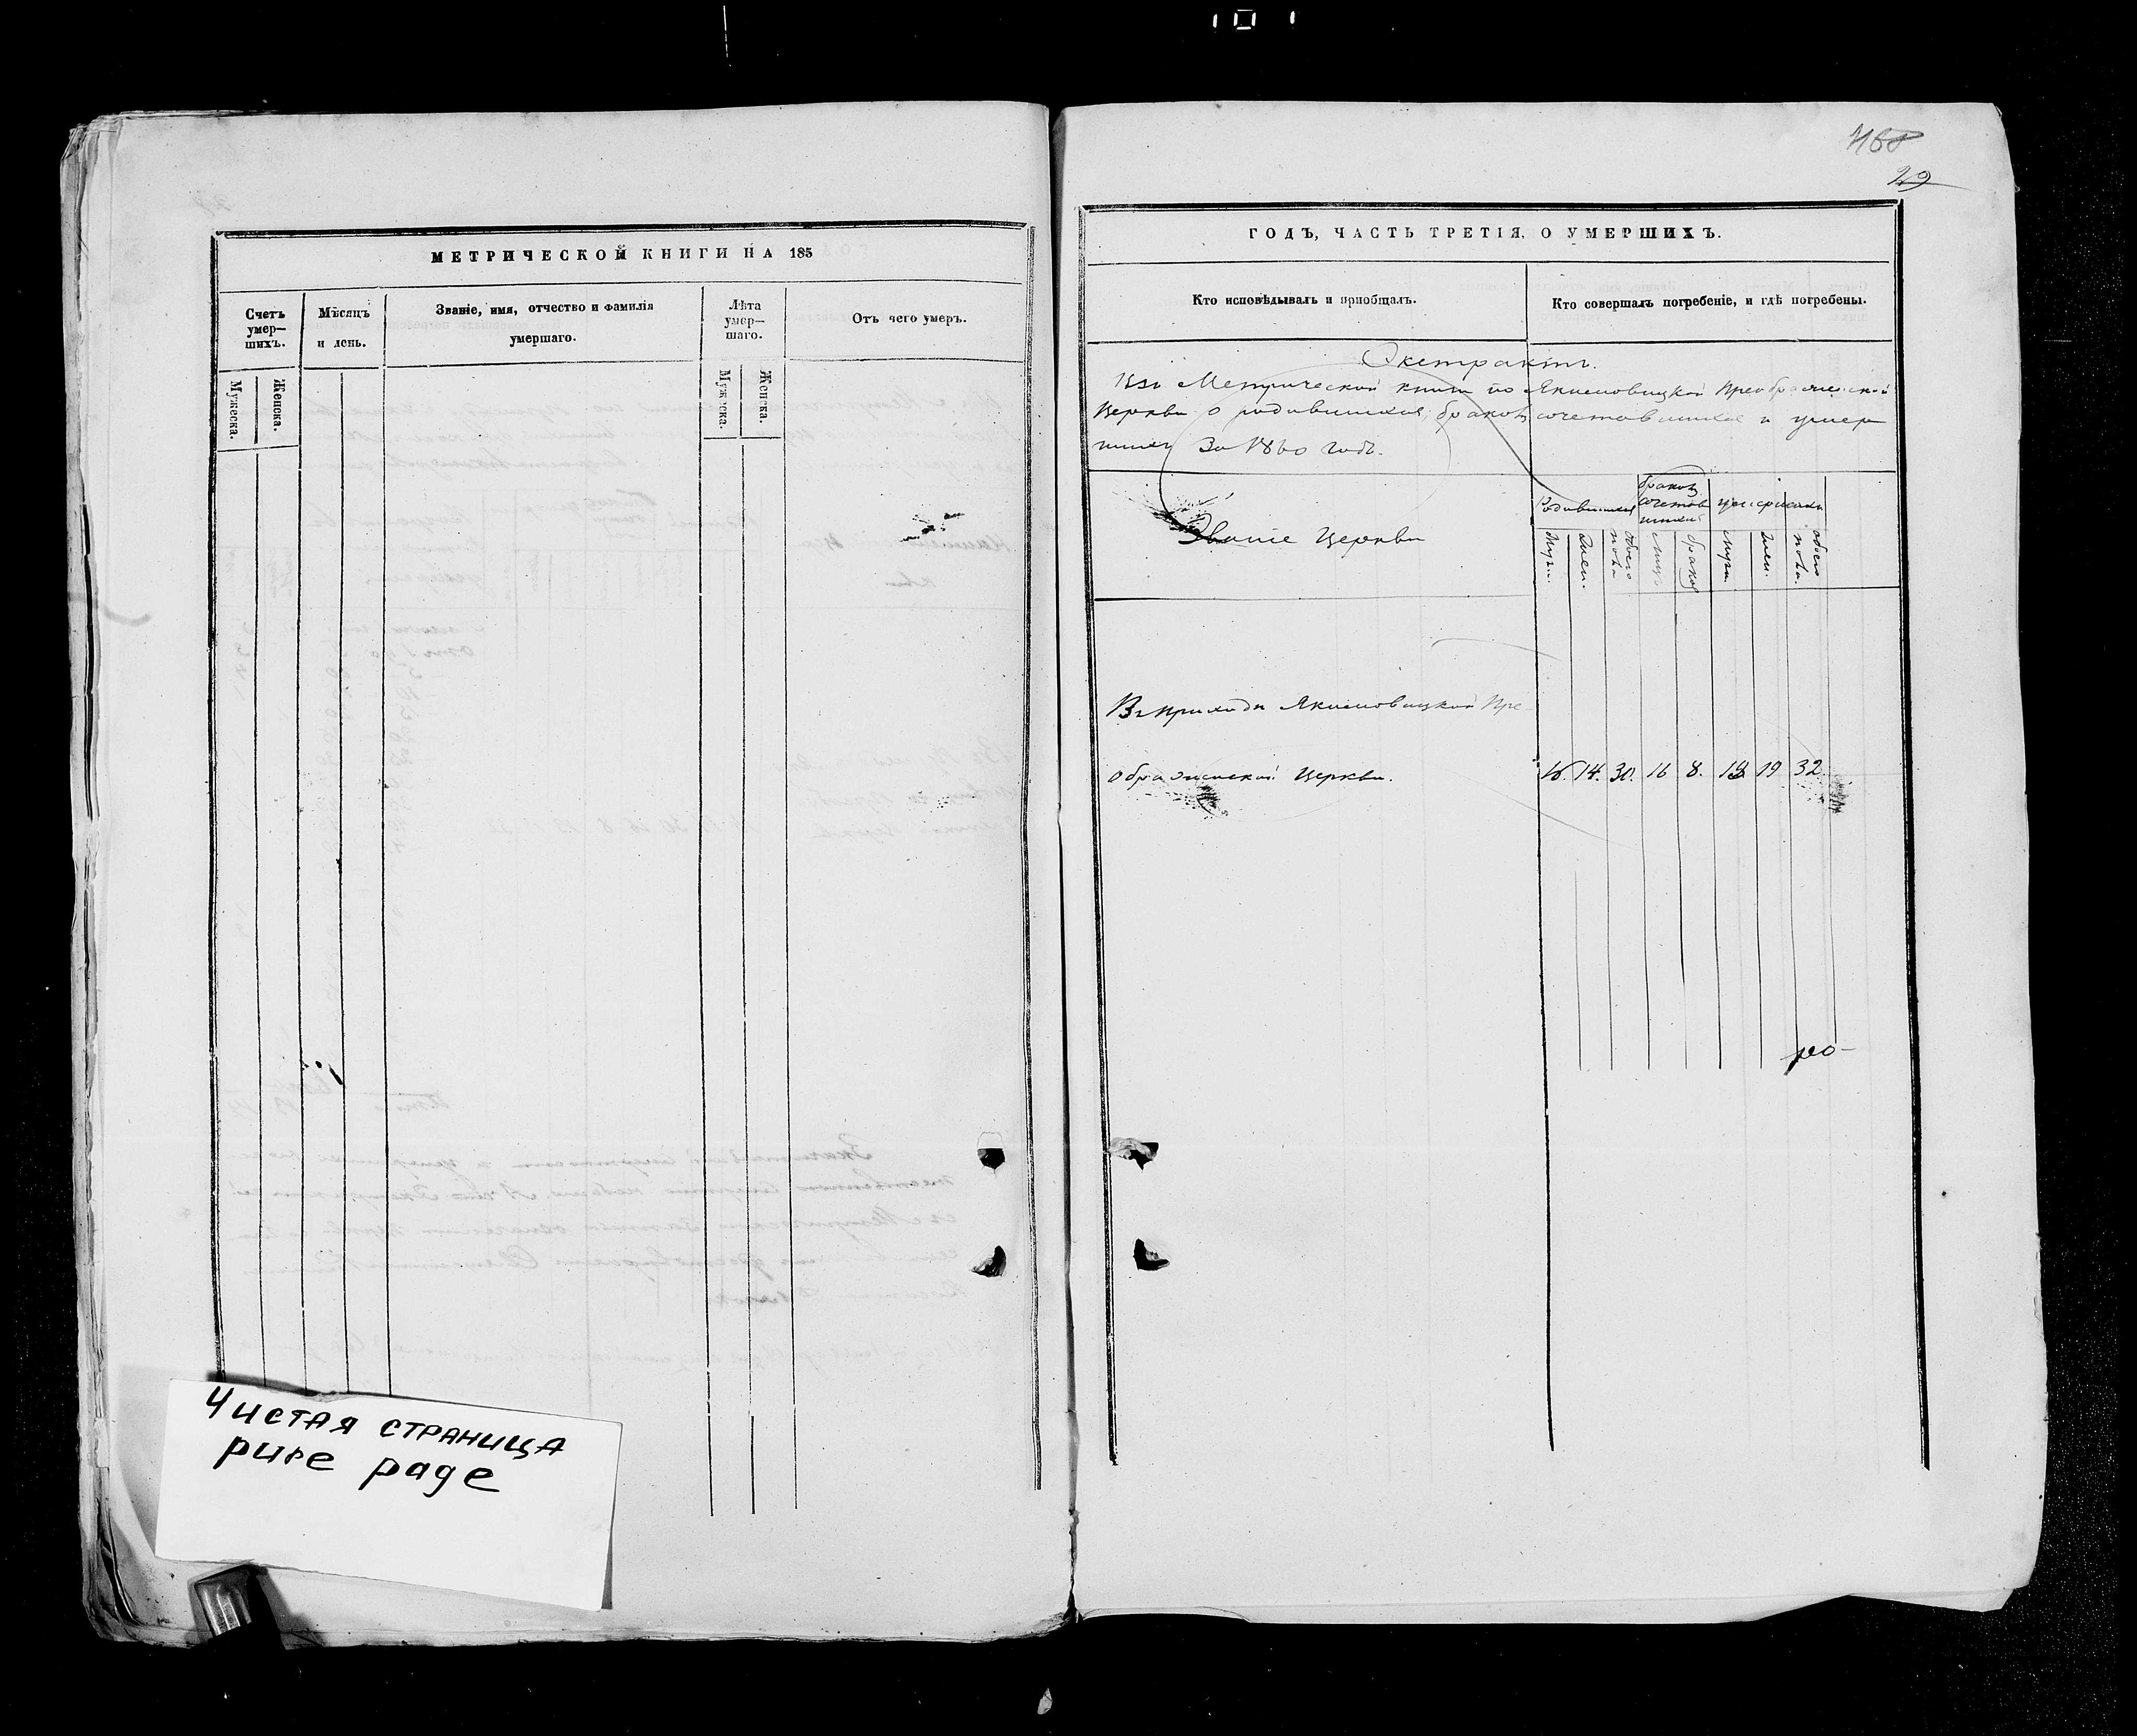 468
29
МЕТРИЧЕСКОЙ КНИГИ НА 185
Счетъ умер—шихъ.
Мужеска.
Женска.
Мѣсяцъ и день.
Званіе, имя, отчество и фамилія умершаго.
Лѣта умер—шаго.
Мужеска.
Женска.
Отъ чего умеръ.
Чистая страница
pure page
ГОДЪ, ЧАСТЬ ТРЕТІЯ, О УМЕРШИХЪ.
Кто исповѣдывалъ и пріобщалъ.
Кто совершалъ погребеніе, и гдѣ погребены.
Экстрактъ.
Изъ Метрической книги по Якимовицкой Преображенской
Церкви о родившихся, бракосочетавшихся и умер
шихъ За 1860 годъ.
Званіе Церкви
Родившихся
бракосочетавшихся
Муж.
Жен.
обоего пола
Лицъ
браковъ
Муж.
Жен.
обоего пола.
Въ приходѣ Якимовицкой Пре
ображенской Церкви.
16. 14. 30. 16 8. 13 19 32